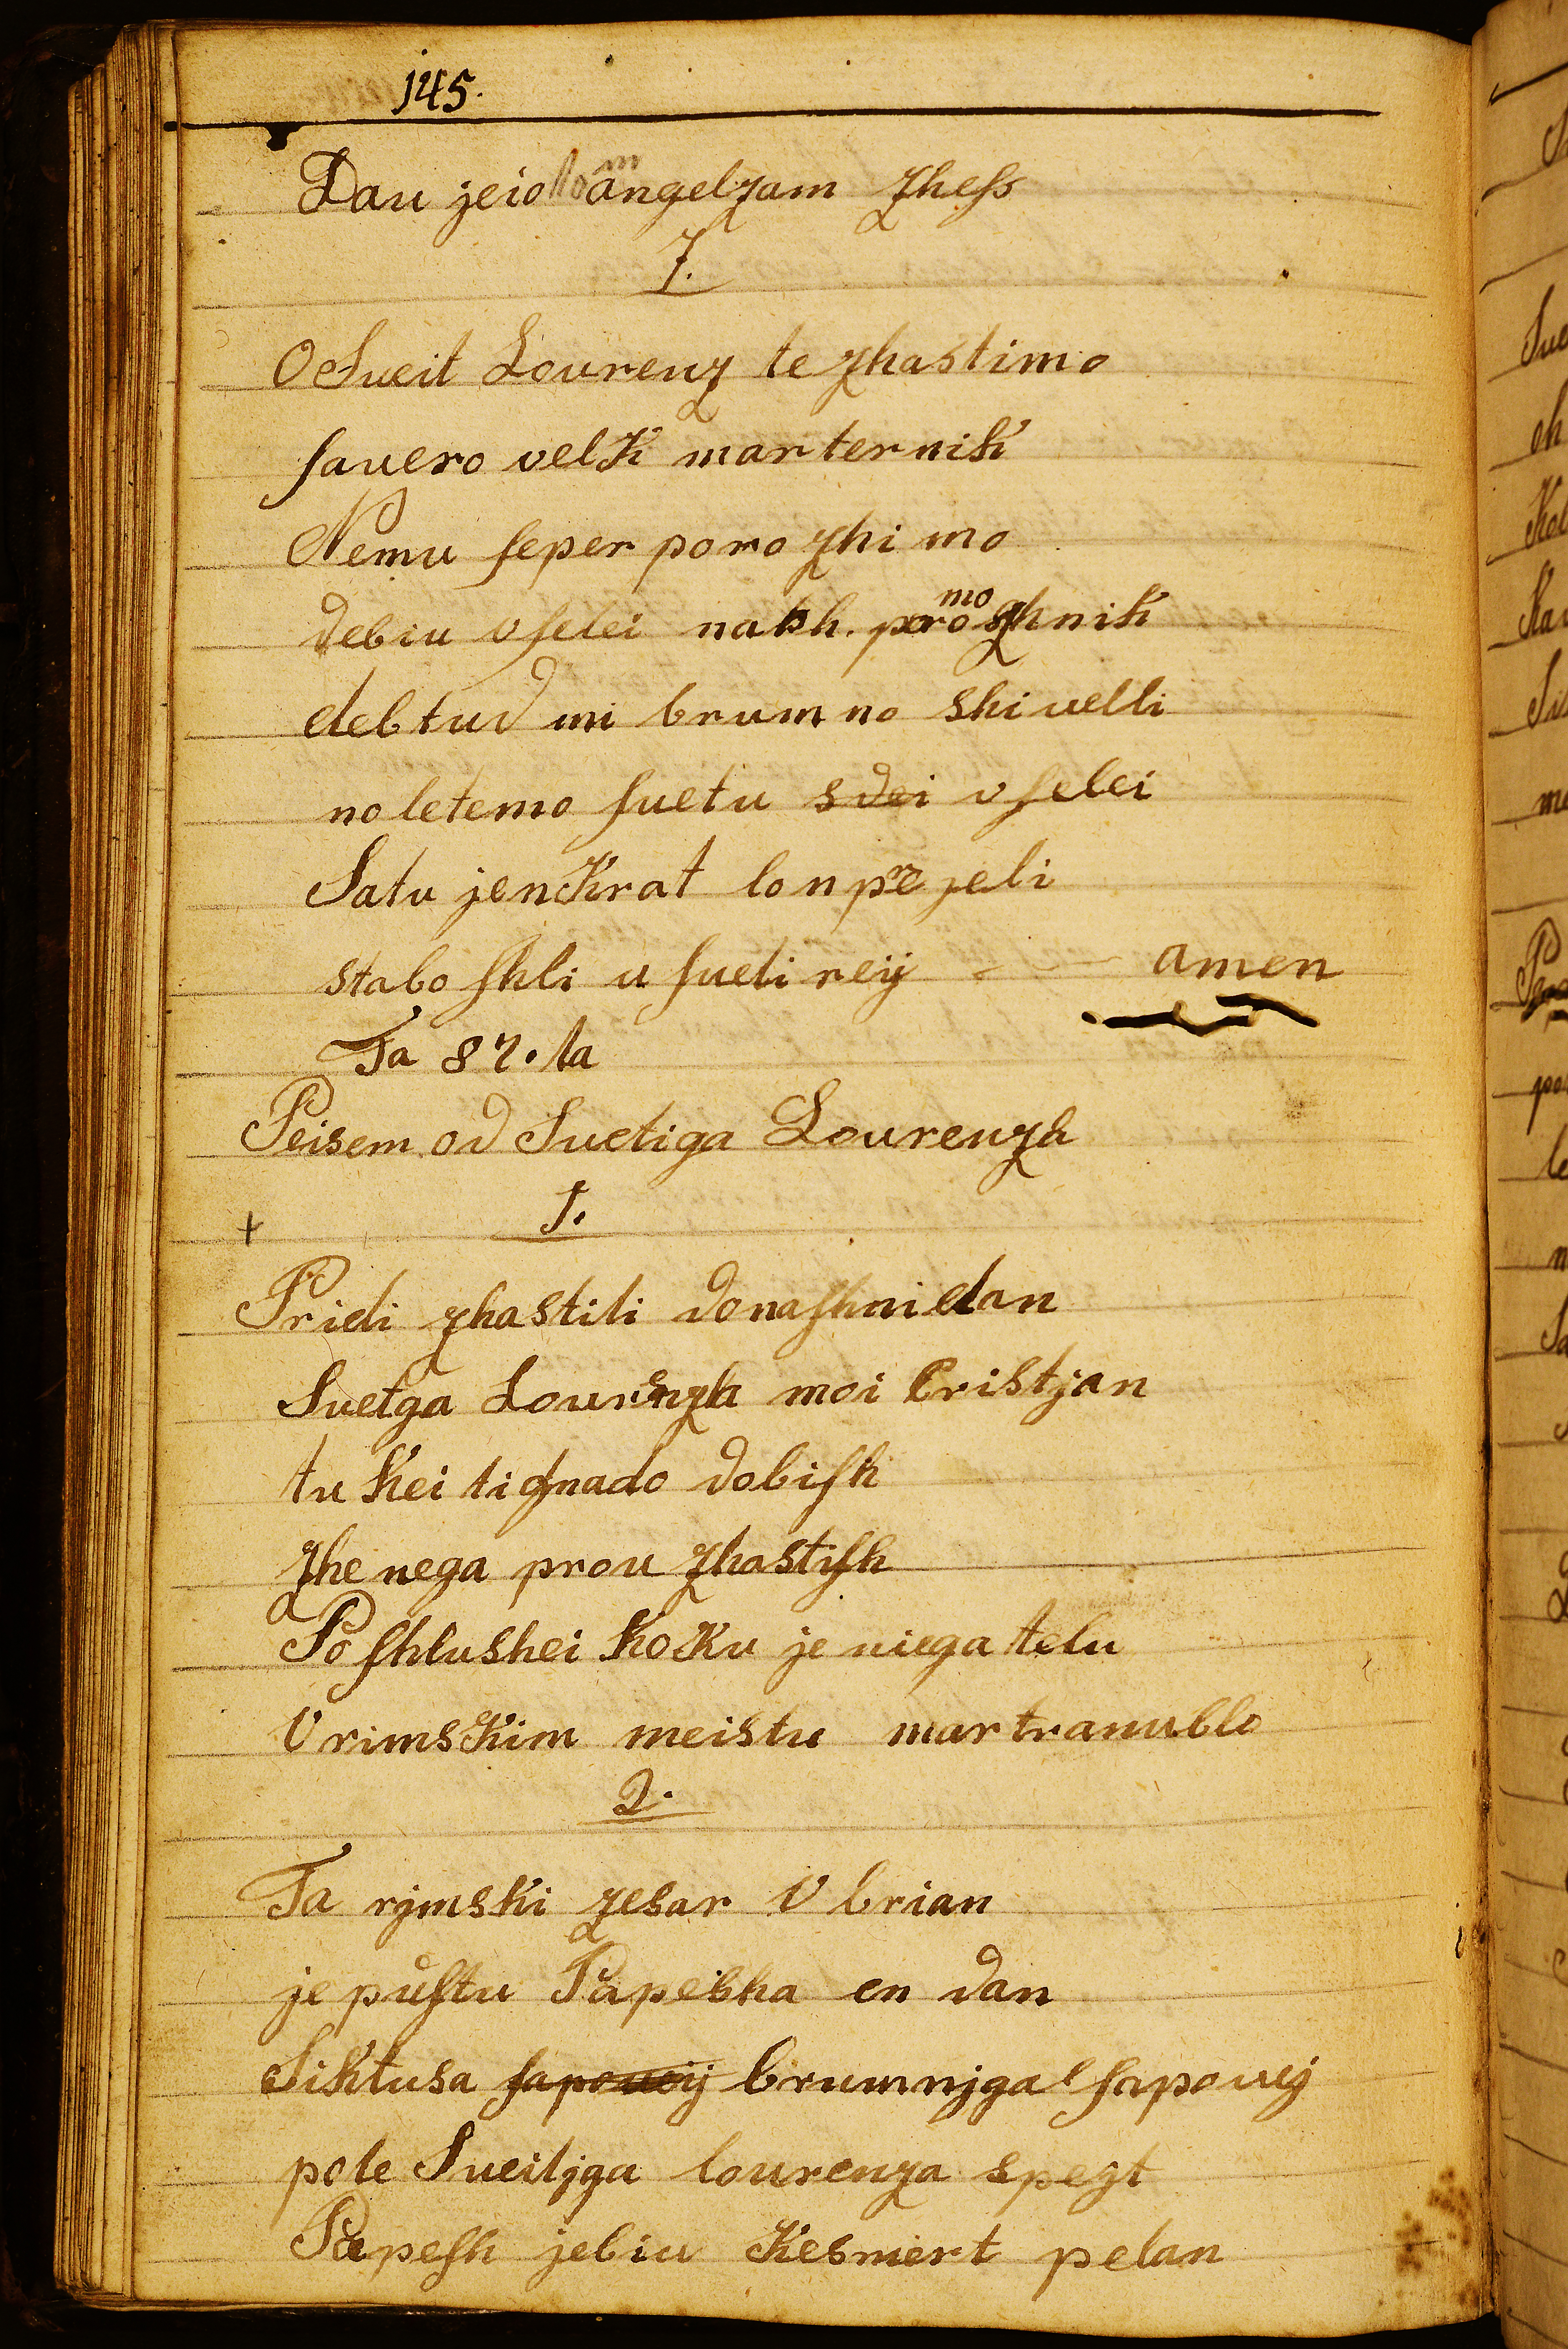 145.
Dau jeio angelzam zhess
7.
O Sueit Lourenz te zhastimo
sauero velk marternik
Nemu seper porozhimo
debiu vselei nash. pomozhnik
debtud mi brumno shivelli
no letemo suetu sdei vselei
Satu jenkrat lon prejeli
stabo shli u sueti reij - - amen
Ta 87. ta
Peisem od Suetiga Lourenza
+ 1.
Pridi zhastiti donashni dan
Suetga Lourenza moi Cristjan
tu kei ti gnado dobish
zhe nega prou zhastish
Poshlushei koku je niega telu
V rimskim meistu martranu blo
2.
Ta rjmski zesar Vbrian
je pustu Papesha en dan
Siktusa sapouij brumnjga sapouej
pole Sueitjga lourenza spezt
Papesh jebiu kesmert pelan